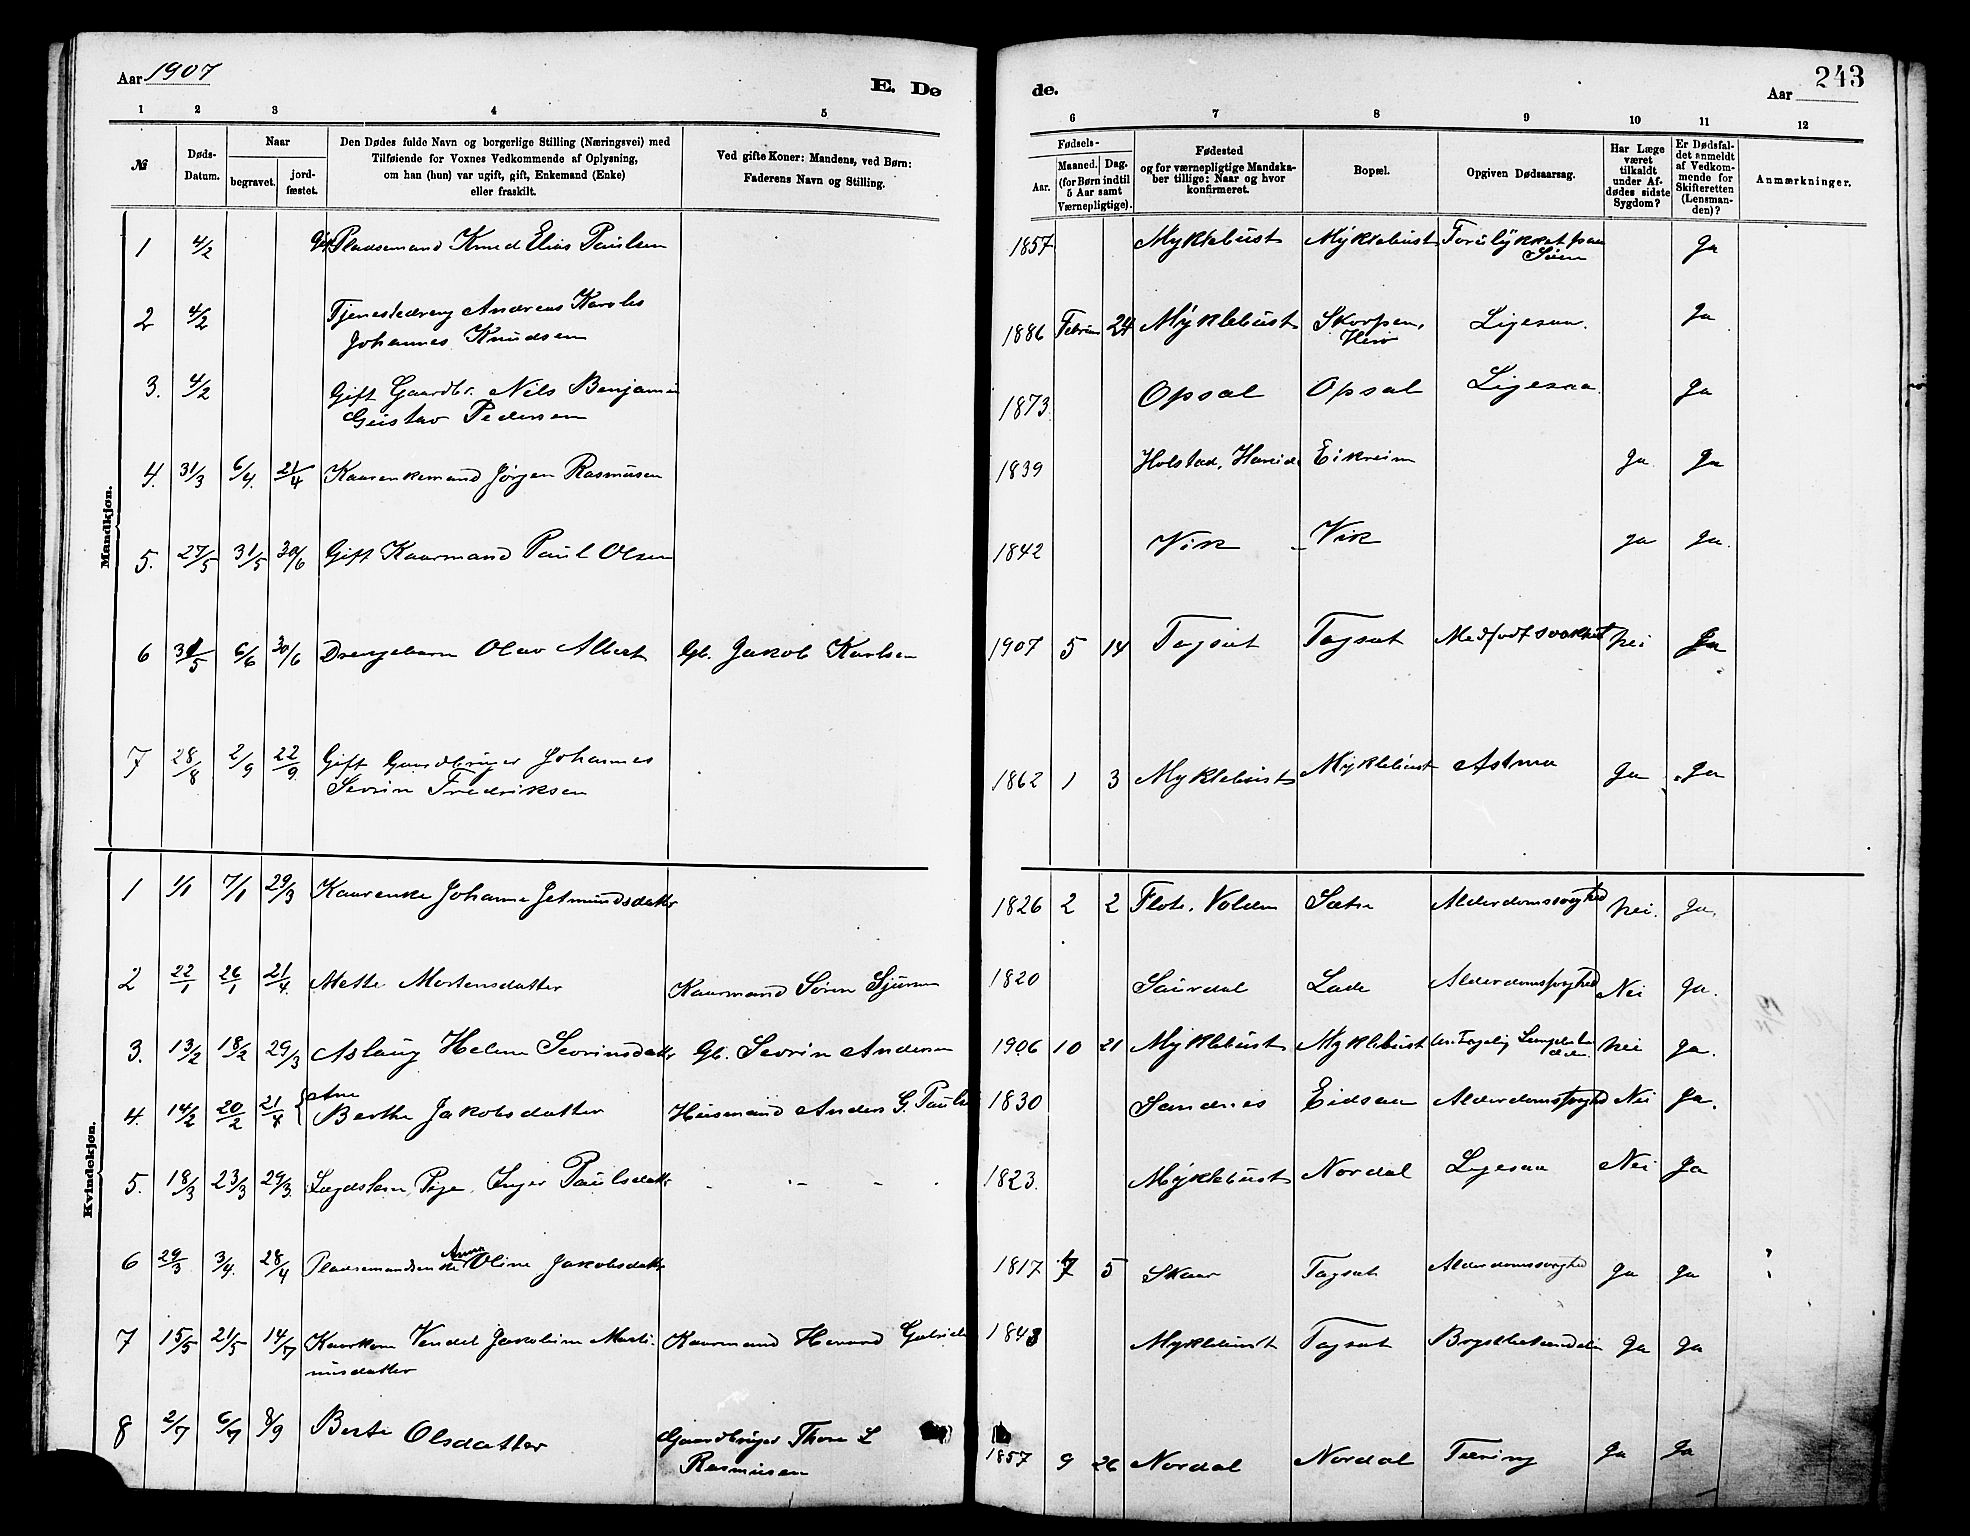 Aar 1907
E. Dø
de.
Aar
243
1 2 3 4 5 6 7 8 9 10 11 12
№
Døds-
Datum.
Naar
begravet.
jord-
fæstet.
Den Dødes fulde Navn og borgerlige Stilling (Næringsvei) med
Tilføiende for Voxnes Vedkommende af Oplysning,
om han (hun) var ugift, gift, Enkemand (Enke)
eller fraskilt.
Ved gifte Koner: Mandens, ved Børn:
Faderens Navn og Stilling.
Fødsels-
Aar.
Maaned. Dag.
(for Børn indtil
5 Aar samt
Værnepligtige).
Fødested
og for værnepligtige Mandska-
ber tillige: Naar og hvor
konfirmeret.
Bopæl.
Opgiven Dødsaarsag.
Har Læge
været
tilkaldt
under Af-
dødes sidste
Sygdom?
Er Dødsfal-
det anmeldt
af Vedkom-
mende for
Skifteretten
(Lensman-
den)?
Anmærkninger.
Mandkjøn.
1 4/2 Gift Pladsemand Knud Elias Paulsen 1857 Myklebust Myklebust Forulykket paa
Søen Ja
2 4/2 Tjenestedreng Andreas Karolus
Johannes Knudsen 1886 Februar 24 Myklebust Skorpen,
Herø Ligesaa. Ja
3. 4/2 Gift Gaardbr. Nils Benjamin
Gustav Pedersen 1873 Opsal Opsal Ligesaa Ja
4. 31/3 6/4. 21/4 Kaarenkemand Jørgen Rasmusen 1839 Holstad, Hareid Eikreim Ja Ja
5. 27/5 31/5 30/6 Gift Kaarmand Paul Olsen 1842 Vik Vik Ja Ja.
6 31/5 6/6 30/6 Drengebarn Olav Albert Gb. Jakob Karlsen 1907 5 14 Tagsæt Tagsæt Medfødt svakhet Nei Ja
7 28/8 2/9 22/9. Gift Gaardbruger Johannes
Sevrin Fredriksen 1862 1 3 Myklebust Myklebust Astma Ja Ja
Kvindekjøn.
1 1/1 7/1 29/3 Kaarenke Johanne Jetmundsdatter 1826 2 2 Flote, Volden Sætre Alderdomssvaghed Nei. Ja.
2 22/1 26/1 21/4. Mette Mortensdatter Kaarmand Søren Sjursen 1820 Saurdal Lade Alderdomssvaghed Nei Ja.
3. 13/2 18/2 29/3 Aslaug Helene Sevrinsdatter Gb. Sevrin Andersen 1906 10 21 Myklebust Myklebust Nei Ja.
4. 14/2 20/2 21/4 Ane
Berthe Jakobsdatter Husmand Anders G. Paulsen 1830 Sandnes Eidsaa Alderdomssvaghed Nei Ja.
5. 18/3 23/3 29/3. Lægdslem, Pige, Inger Paulsdatter - - - 1823. Myklebust Nordal Ligesaa Nei Ja
6 29/3 3/4. 28/4 Pladsemandsenke Anne Oline Jakobsdatter 1817 7 5 Skaar Tagsæt Alderdomssvaghed Ja Ja ?
7 15/5 21/5 14/7 Kaarkone Vendel Jakobine Marti-
nusdatter Kaarmand Havard Gabrielsen 1843 Myklebust Tagsæt Brystbetændelse Ja Ja
8 2/7 6/7 8/9 Berte Olsdatter Gaardbruger Thore L
Rasmusen 1857 9 26 Nordal Nordal Tæring Ja Ja